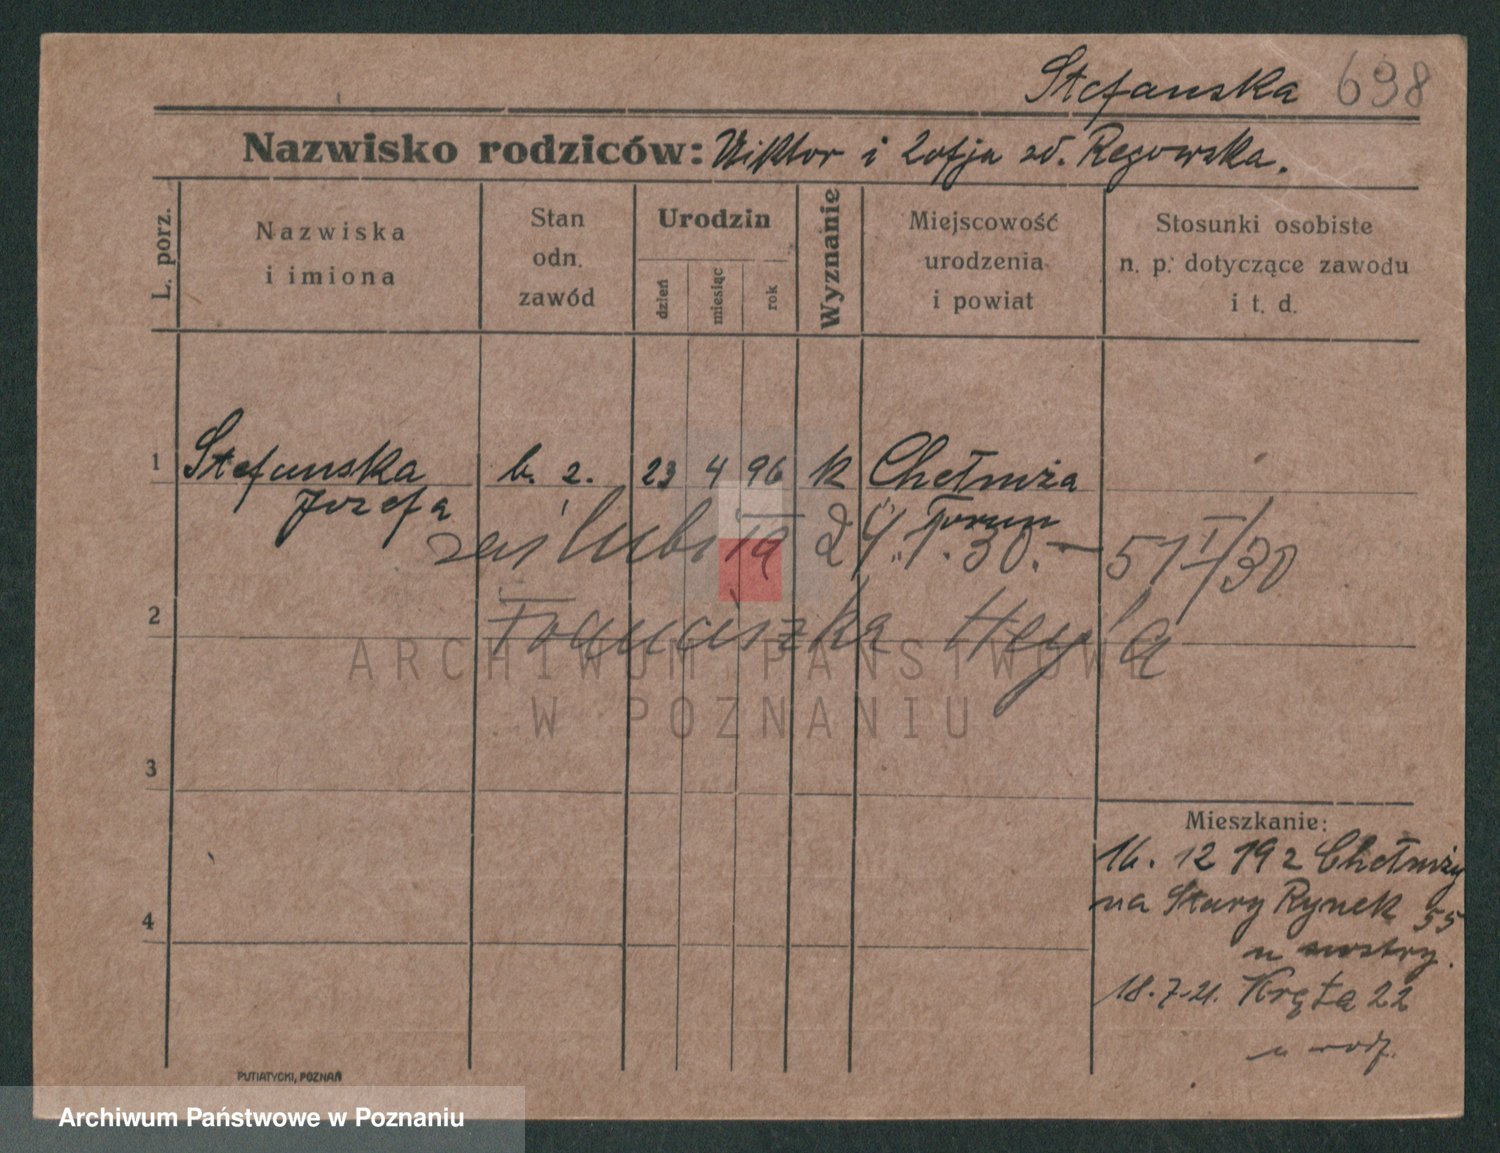 Stefanska 698
Nazwisko rodziców: Wiktor i Zofja zd. Rezowska.
L. porz.
Nazwiska i imiona
Stan odn. zawód
Urodzin
dzień
miesiąc
rok
Wyznanie
Miejscowość urodzenia i powiat
Stosunki osobiste n. p. dotyczące zawodu i t. d.
1 Stefanska b. z. 23 4 96 k Chełmża
Jozefa Torun
zaślubiła 24.1.30. — 51 I/30
2 Franciszka Heyla
3
4
Mieszkanie:
16. 12 192 Chełmży
na Stary Rynek 55
u siostry.
18.7.21. Kręta 22
u rodz.
PUTIATYCKI, POZNAŃ
ARCHIWUM PAŃSTWOWE
W POZNANIU
Archiwum Państwowe w Poznaniu